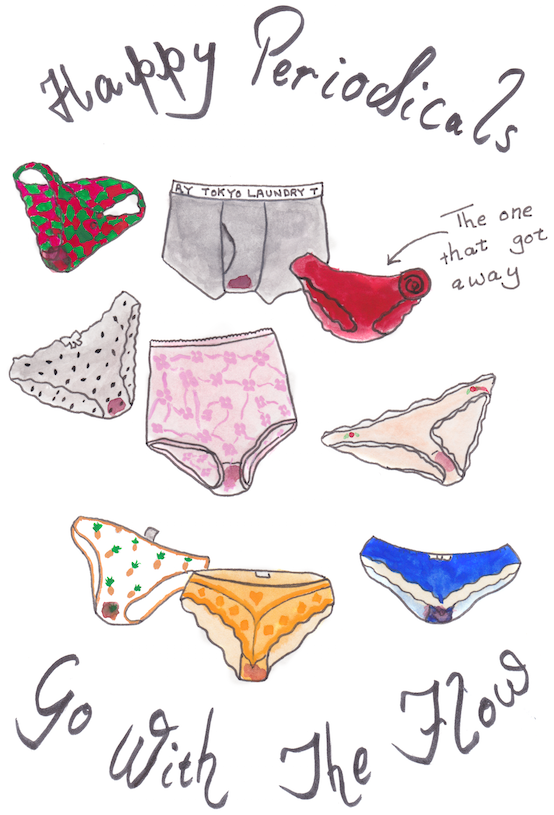 Happy Periodicals
AY TOKYO LAUNDRY T
The one
that got
away
Go With The Flow